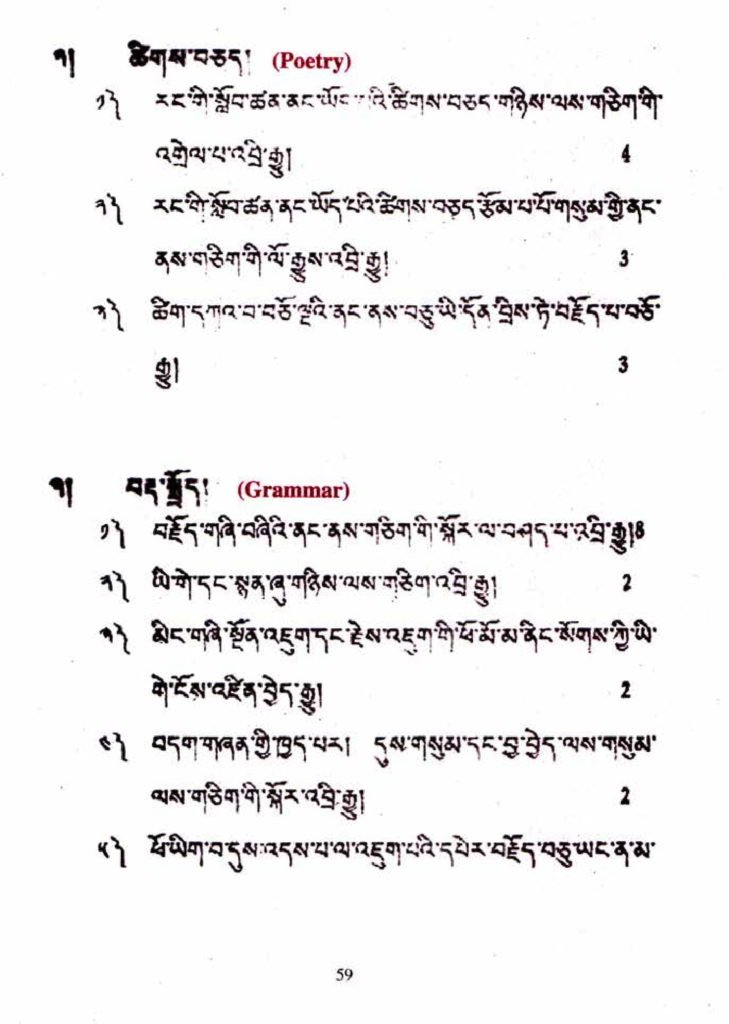 ༢། ཚིགས་བཅད། (Poetry)
༡༽ རང་གི་སློབ་ཚན་ནང་ཡོད་པའི་ཚིགས་བཅད་གཉིས་ལས་གཅིག་གི་
འགྲེལ་པ་འབྲི་རྒྱུ། 4
༢༽ རང་གི་སློབ་ཚན་ནང་ཡོད་པའི་ཚིགས་བཅད་རྩོམ་པ་པོ་གསུམ་གྱི་ནང་
ནས་གཅིག་གི་ལོ་རྒྱུས་འབྲི་རྒྱུ། 3
༣༽ ཚིག་དཀའ་བ་བཅོ་ལྔའི་ནང་ནས་བཅུ་ཡི་དོན་བྲིས་ཏེ་བརྗོད་པ་བཅོ་
རྒྱུ། 3
༣། བརྡ་སྤྲོད། (Grammar)
༡༽ བརྗོད་གཞི་བཞིའི་ནང་ནས་གཅིག་གི་སྐོར་ལ་བཤད་པ་འབྲི་རྒྱུ།8
༢༽ ཡི་གེ་དང་སྙན་ཞུ་གཉིས་ལས་གཅིག་འབྲི་རྒྱུ། 2
༣༽ མིང་གཞི་སྔོན་འཇུག་དང་རྗེས་འཇུག་གི་ཕོ་མོ་མ་ནིང་སོགས་ཀྱི་ཡི་
གེ་ངོས་འཛིན་བྱེད་རྒྱུ། 2
༤༽ བདག་གཞན་གྱི་ཁྱད་པར། དུས་གསུམ་དང་བྱ་བྱེད་ལས་གསུམ་
ལས་གཅིག་གི་སྐོར་འབྲི་རྒྱུ། 2
༥༽ ཕོ་ཡིག་བ་དུས་འདས་པ་ལ་འཇུག་པའི་དཔེར་བརྗོད་བཅུ་ཡང་ན་མ་
59